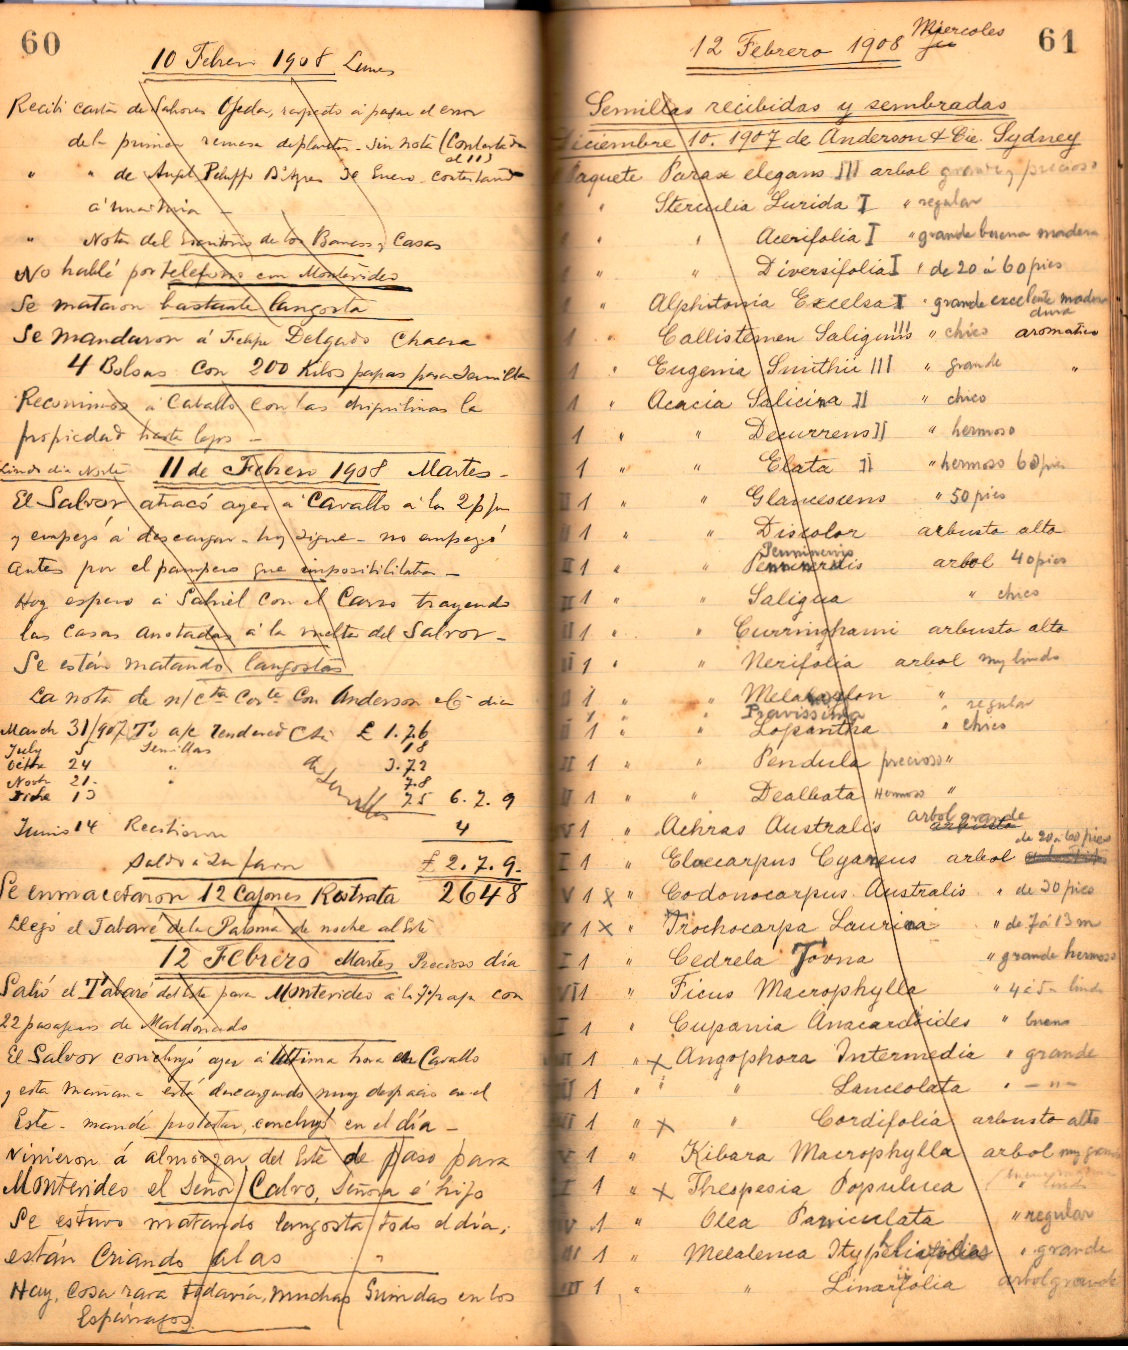 60
10 Febrero 1908 Lunes
Recibi carta de Sahores Ojeda, respecto á pagar el error
del primer remesa de plantas - sin nota (Contestada
el 11)
" " de Angel Peluffo Bs Ayres 7 de Enero - contestando
á una mia -
" Nota del Escritorio de los Bancos y Casas
No hablé por telefono con Montevideo
Se mataron bastante langosta
Se mandaron á Felipe Delgado Chacra
4 Bolsas con 200 Kilos papas para semilla
Recorrimos á Caballo con las chiquilinas la
propiedad hasta lejos -
Lindo dia Norte 11 de Febrero 1908 Martes -
El Salvor atracó ayer á Cavallo á las 2 p/m
y empezó á descargar - hoy sigue - no empezó
antes por el pampero que imposibilitaba -
Hoy espero á Gabriel con el Carro trayendo
las casas anotadas á la vuelta del Salvor -
Se están matando langostas
La nota de n/ cta Corte Con Anderson & C dia
March 31/907 To a/c rendered £ 1.7.6
July 5 Semillas 18
Octbe 24 " 3.7.2
Novbe 21 - " 7.8
Diche 13 7.5 6.7.9
Junio 14 Recibieron 4
Saldo á su favor £ 2.7.9.
Se enmacetaron 12 Cajones Rostrata 2648
Llegó el Tabaré de la Paloma de noche al Este
12 Febrero Martes Precioso día
Salió el Tabaré del Este para Montevideo á la 7 1/2 p/m con
22 pasajeros de Maldonado
El Salvor concluyó ayer á última hora en Cavallo
y esta mañana está descargando muy despacio en el
Este - mandé protestar, concluyó en el día -
Vinieron á almorzar del Este de paso para
Montevideo el Señor Calvo, Señora é hijo
Se estuvo matando langosta todo el día,
están Criando alas "
Hay, cosa rara todavia, muchas Guindas en los
Espárragos.
61
12 Febrero 1908 Miercoles
Semillas recibidas y sembradas
Diciembre 10. 1907 de Anderson & Cie. Sydney
Paquete Parax elegans III arbol grande y precioso
" Sterculia Lurida I " regular
" " Acerifolia I " grande buena madera
" " Diversifolia I " de 20 á 60 pies
" Alphitonia Excelsa I " grande excelente madera
dura
1 " Callistemen Salignus III " chico aromatico
1 " Eugenia Smithii III " grande "
1 " Acacia Salicina II " chico
1 " " Decurrens II " hermoso
1 " " Elata II " hermoso 60 pies
II 1 " " Glaucescens " 50 pies
II 1 " " Discolor arbusto alto
Penninervis
II 1 " " Penninervis arbol 40 pies
II 1 " " Saligna " chico
II 1 " " Cunninghami arbusto alto
II 1 " " Nerifolia arbol muy lindo
II 1 " " Melanoxylon " regular
Pravissima
II 1 " " Lopantha " chico
II 1 " " Pendula precioso "
II 1 " " Dealbata Hermoso "
V 1 " Achras Australis arbol grande
I 1 " Elaecarpus Cyaneus arbol de 20 á 60 pies
V 1 X " Codonocarpus Australis " de 30 pies
V 1 X " Trochocarpa Laurina " de 7 á 13 m
I 1 " Cedrela Toona " grande hermoso
VII 1 " Ficus Macrophylla " 4 á 5 - lindo
I 1 " Cupania Anacardoides " bueno
VI 1 " X Angophora Intermedia " grande
II 1 " " Lanceolata " - " -
II 1 " X " Cordifolia arbusto alto
V 1 " Kibara Macrophylla arbol muy grande
I 1 " X Thespesia Populnea
V 1 " Olea Paniculata " regular
III 1 " Melaleuca Styphelioides " grande
III 1 " " Linarifolia arbol grande